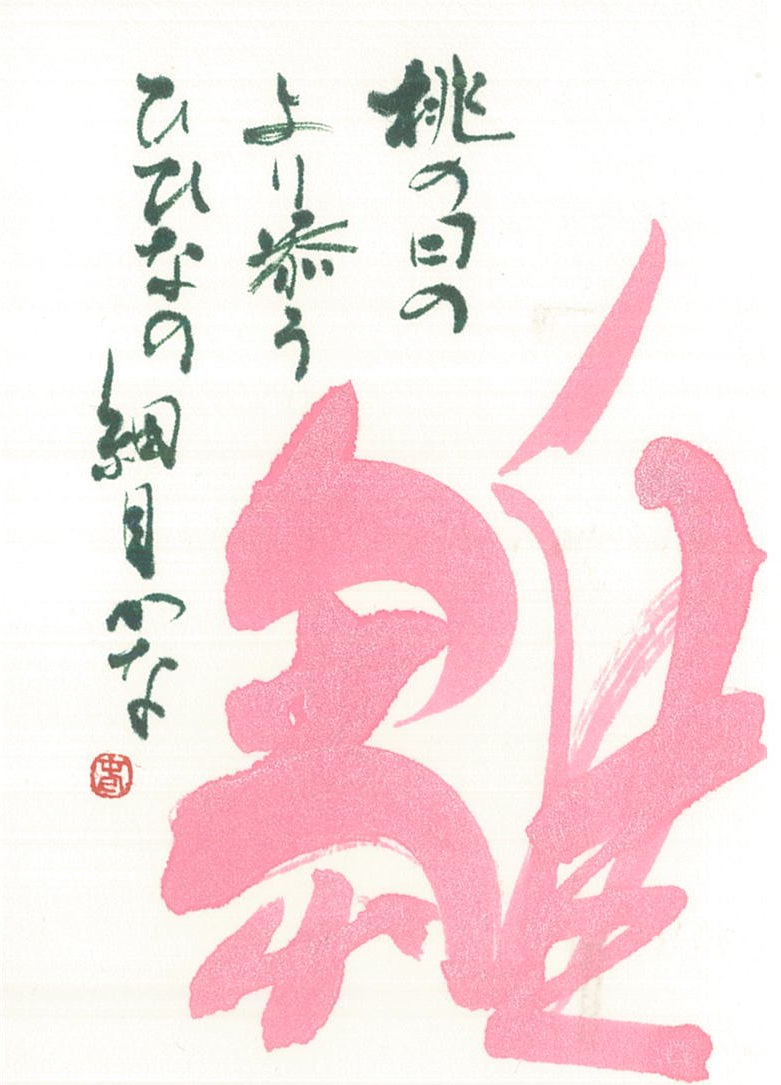 桃の日の
より添う
ひひなの細目かな
雛